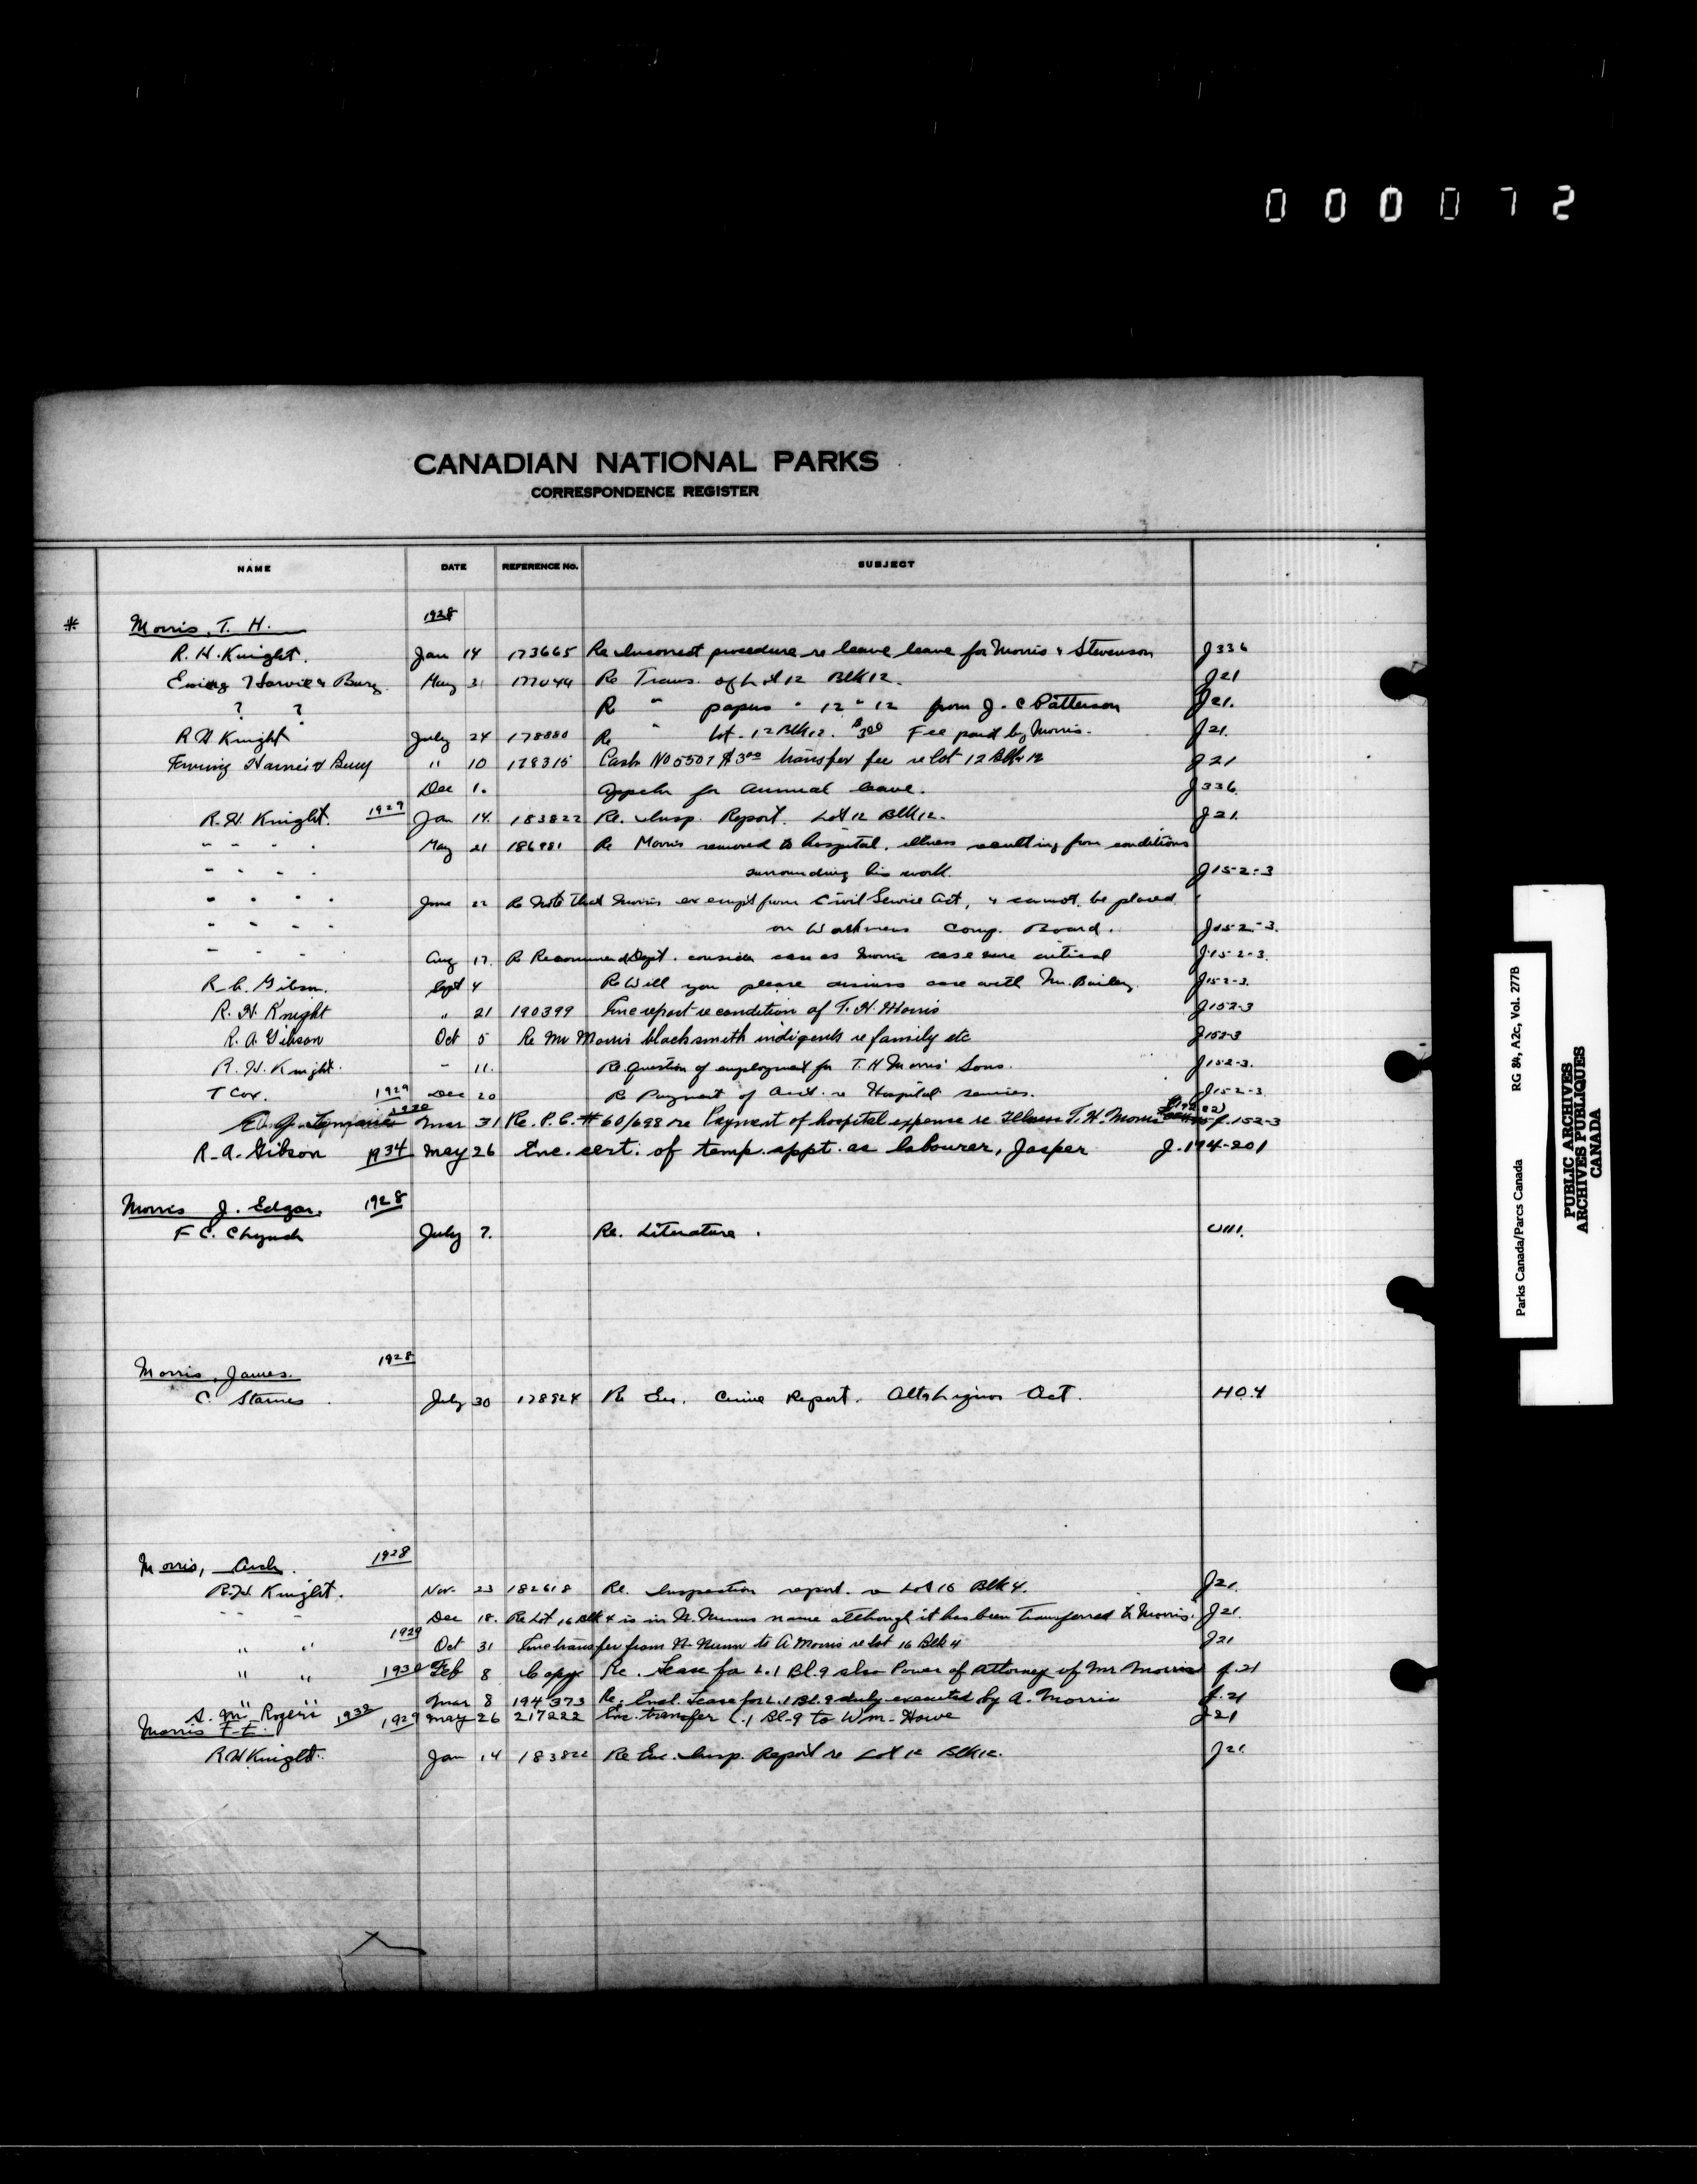 000072
CANADIAN NATIONAL PARKS
CORRESPONDENCE REGISTER
NAME DATE REFERENCE No. SUBJECT
* Morris, T. H. 1928
R. H. Knight. Jan 14 173665 Re Incorrect procedure re leave leave for Morris & Stevenson J336
May 31 177044 Re Trans. of Lot 12 Blk 12. J21
? ? R " papers " 12 " 12 from J. C Patterson J21.
R H Knight July 24 178880 Re " Lot. 12 Blk 12. $3.00 Fee paid by Morris. J21.
" 10 178315 Cash No 5507 $3.00 transfer fee re lot 12 Blk 12 J21
Dec 1. Appeln for annual leave. J336.
R. H. Knight. 1929 Jan 14. 183822 Re. Insp. Report. Lot 12 Blk 12. J21.
" " " " May 21 186981 Re Morris removed to hospital, illness resulting from conditions
" " " " surrounding his work. J152-3
" " " " June 22 Re Note that Morris exempt from Civil Service Act, & cannot be placed
" " " " on Workmens Comp. Board. J152-3.
" " " Aug 17. Re Recommend Dept. consider case as Morris case critical J152-3.
Gibson. Sept 4 Re Will you please discuss case with Mr. Bailey. J152-3.
R. H. Knight " 21 190399 Enc report re condition of T. H. Morris J152-3
R. A. Gibson Oct 5 Re Mr Morris blacksmith indigents re family etc J152-3
R. H. Knight. " 11. Re Question of employment for T. H Morris' Sons. J152-3.
T Cox. 1929 Dec 20 Re Payment of Acct. re Hospital services. J152-3
1930 Mar 31 Re. P.C. # 60/698 re Payment of hospital expense re Illness T. H. Morris J.152-3
R. A. Gibson 1934 May 26 Enc. cert. of temp. appt. as labourer, Jasper J.194-201
Morris J. Edgar. 1928
F C. July 7. Re. Literature. U111.
Morris, James. 1928
C. Starnes July 30 178924 Re Enc. Crime Report. Alta Liquor Act. HO.4
Morris, Arch. 1928
R. H. Knight. Nov. 23 182618 Re. Inspection report. re Lot 16 Blk 4. J21.
" " " Dec 18. Re Lot 16 Blk 4 is in N. Nunns name although it has been Transferred to Morris. J21.
" " 1929 Oct 31 Enc transfer from N Nunn to A Morris re lot 16 Blk 4 J21
" " 1930 Feb 8 Copy Re. Lease for L.1 Bl.9 also Power of Attorney of Mr Morris J.21
" " Mar 8 194373 Re. Encl. Lease for L.1 Bl.9 duly executed by A. Morris J.21
S. M. Rogers 1932 May 26 217222 Enc. transfer L.1 Bl-9 to Wm. Howe J21
Morris F. E. 1929
R H Knight. Jan 14 183822 Re Enc. Insp. Report re Lot 12 Blk 12. J21.
Parks Canada/Parcs Canada RG 84, A2c, Vol. 277B
PUBLIC ARCHIVES
ARCHIVES PUBLIQUES
CANADA